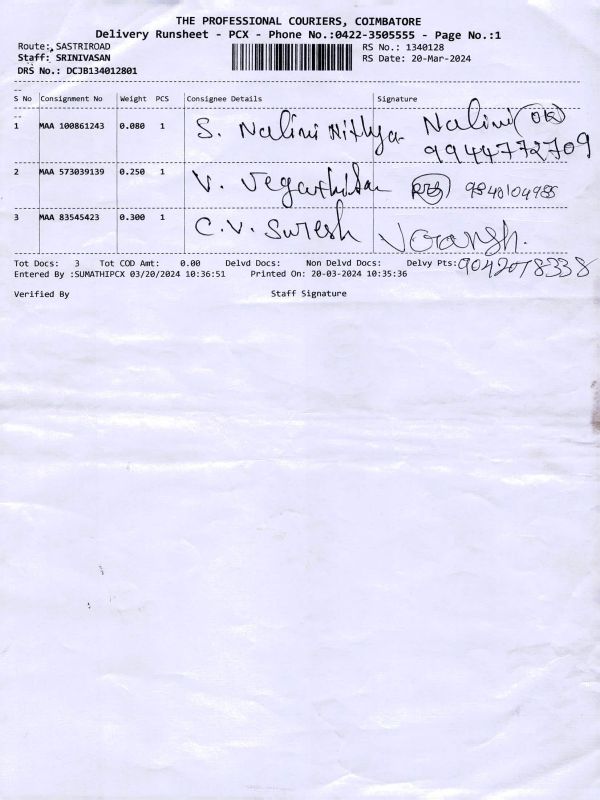 THE PROFESSIONAL COURIERS, COIMBATORE
Delivery Runsheet - PCX - Phone No.:0422-3505555 - Page No.:1
Route: SASTRIROAD RS No.: 1340128
Staff: SRINIVASAN RS Date: 20-Mar-2024
DRS No.: DCJB134012801
S No Consignment No Weight PCS Consignee Details Signature
1 MAA 100861243 0.080 1 S. Nalini Nithya Nalini (OK)
9944772709
2 MAA 573039139 0.250 1 V. 9840104988
3 MAA 83545423 0.300 1 C.V. Suresh
Tot Docs: 3 Tot COD Amt: 0.00 Delvd Docs: Non Delvd Docs: Delvy Pts: 9042078338
Entered By :SUMATHIPCX 03/20/2024 10:36:51 Printed On: 20-03-2024 10:35:36
Verified By Staff Signature